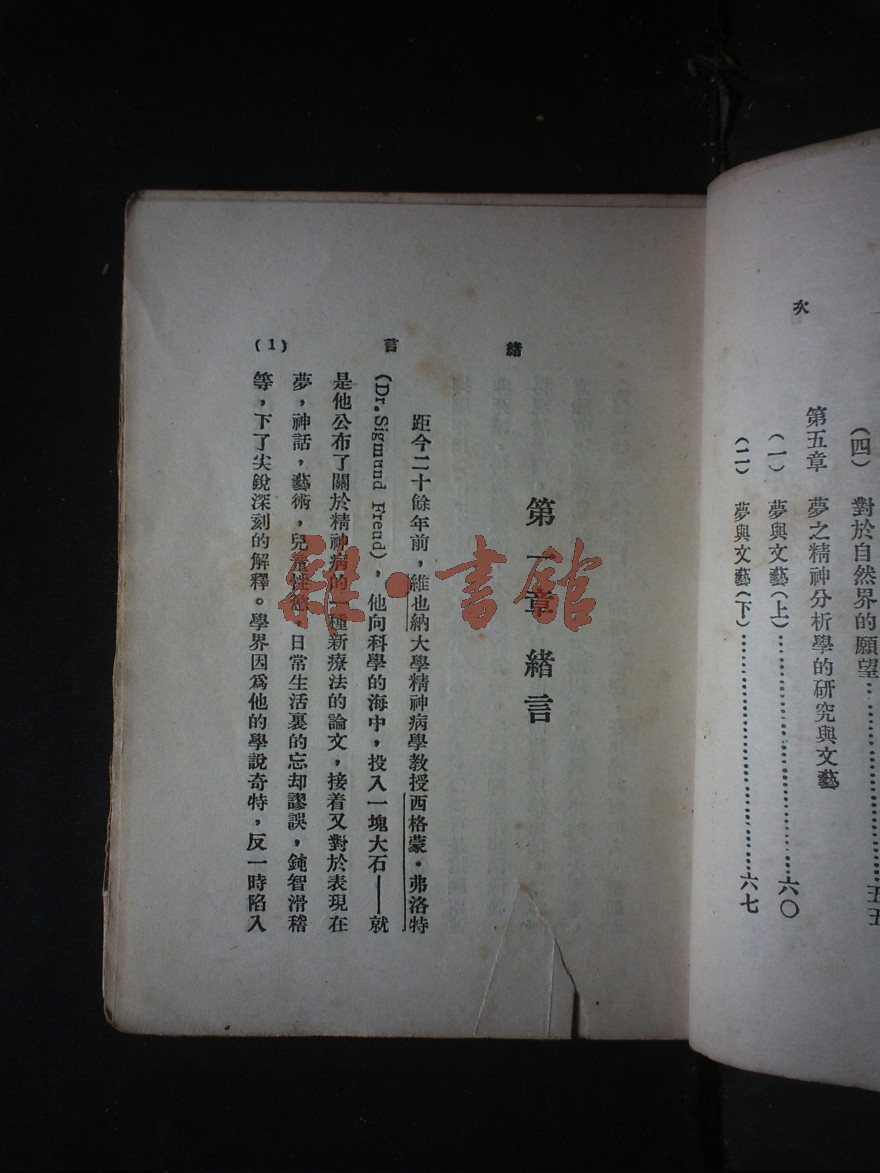 次
(四) 對於自然界的願望……………………五五
第五章 夢之精神分析學的研究與文藝
(一) 夢與文藝(上)……………………六〇
(二) 夢與文藝(下)……………………六七
緒言
(1)
第一章 緒言
距今二十餘年前，維也納大學精神病學教授西格蒙·弗洛特
(Dr. Sigmund Freud)，他向科學的海中，投入一塊大石——就
是他公布了關於精神病的一種新療法的論文，接着又對於表現在
夢，神話，藝術，兒童性慾，日常生活裏的忘却謬誤，鈍智滑稽
等，下了尖銳深刻的解釋。學界因爲他的學說奇特，反一時陷入
雜·書館